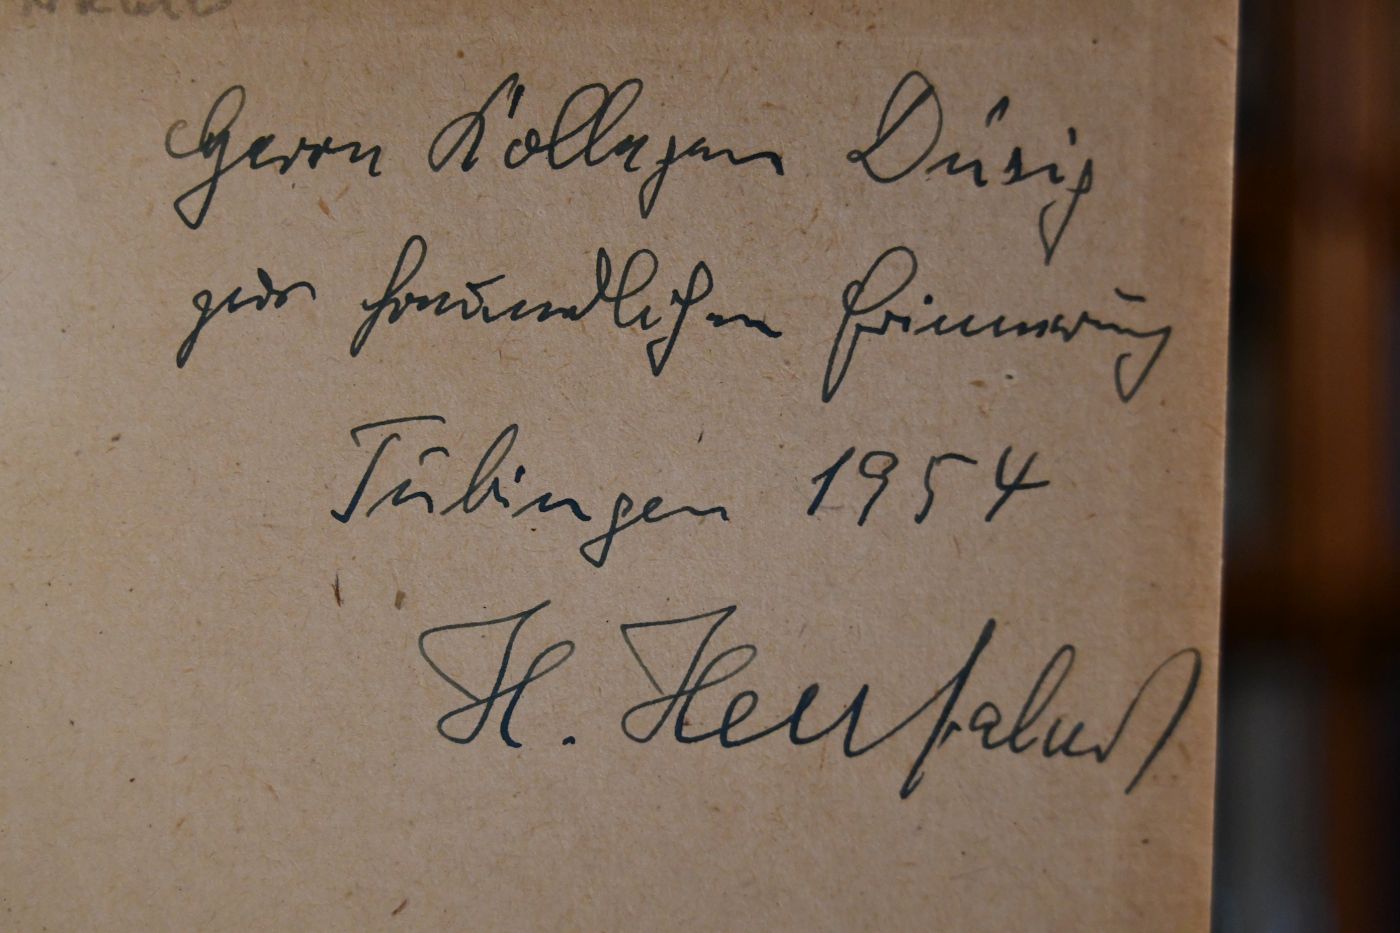 Herrn Kollegen Dürig
zur freundlichen Erinnerung
Tübingen 1954
H. Herrfahrdt